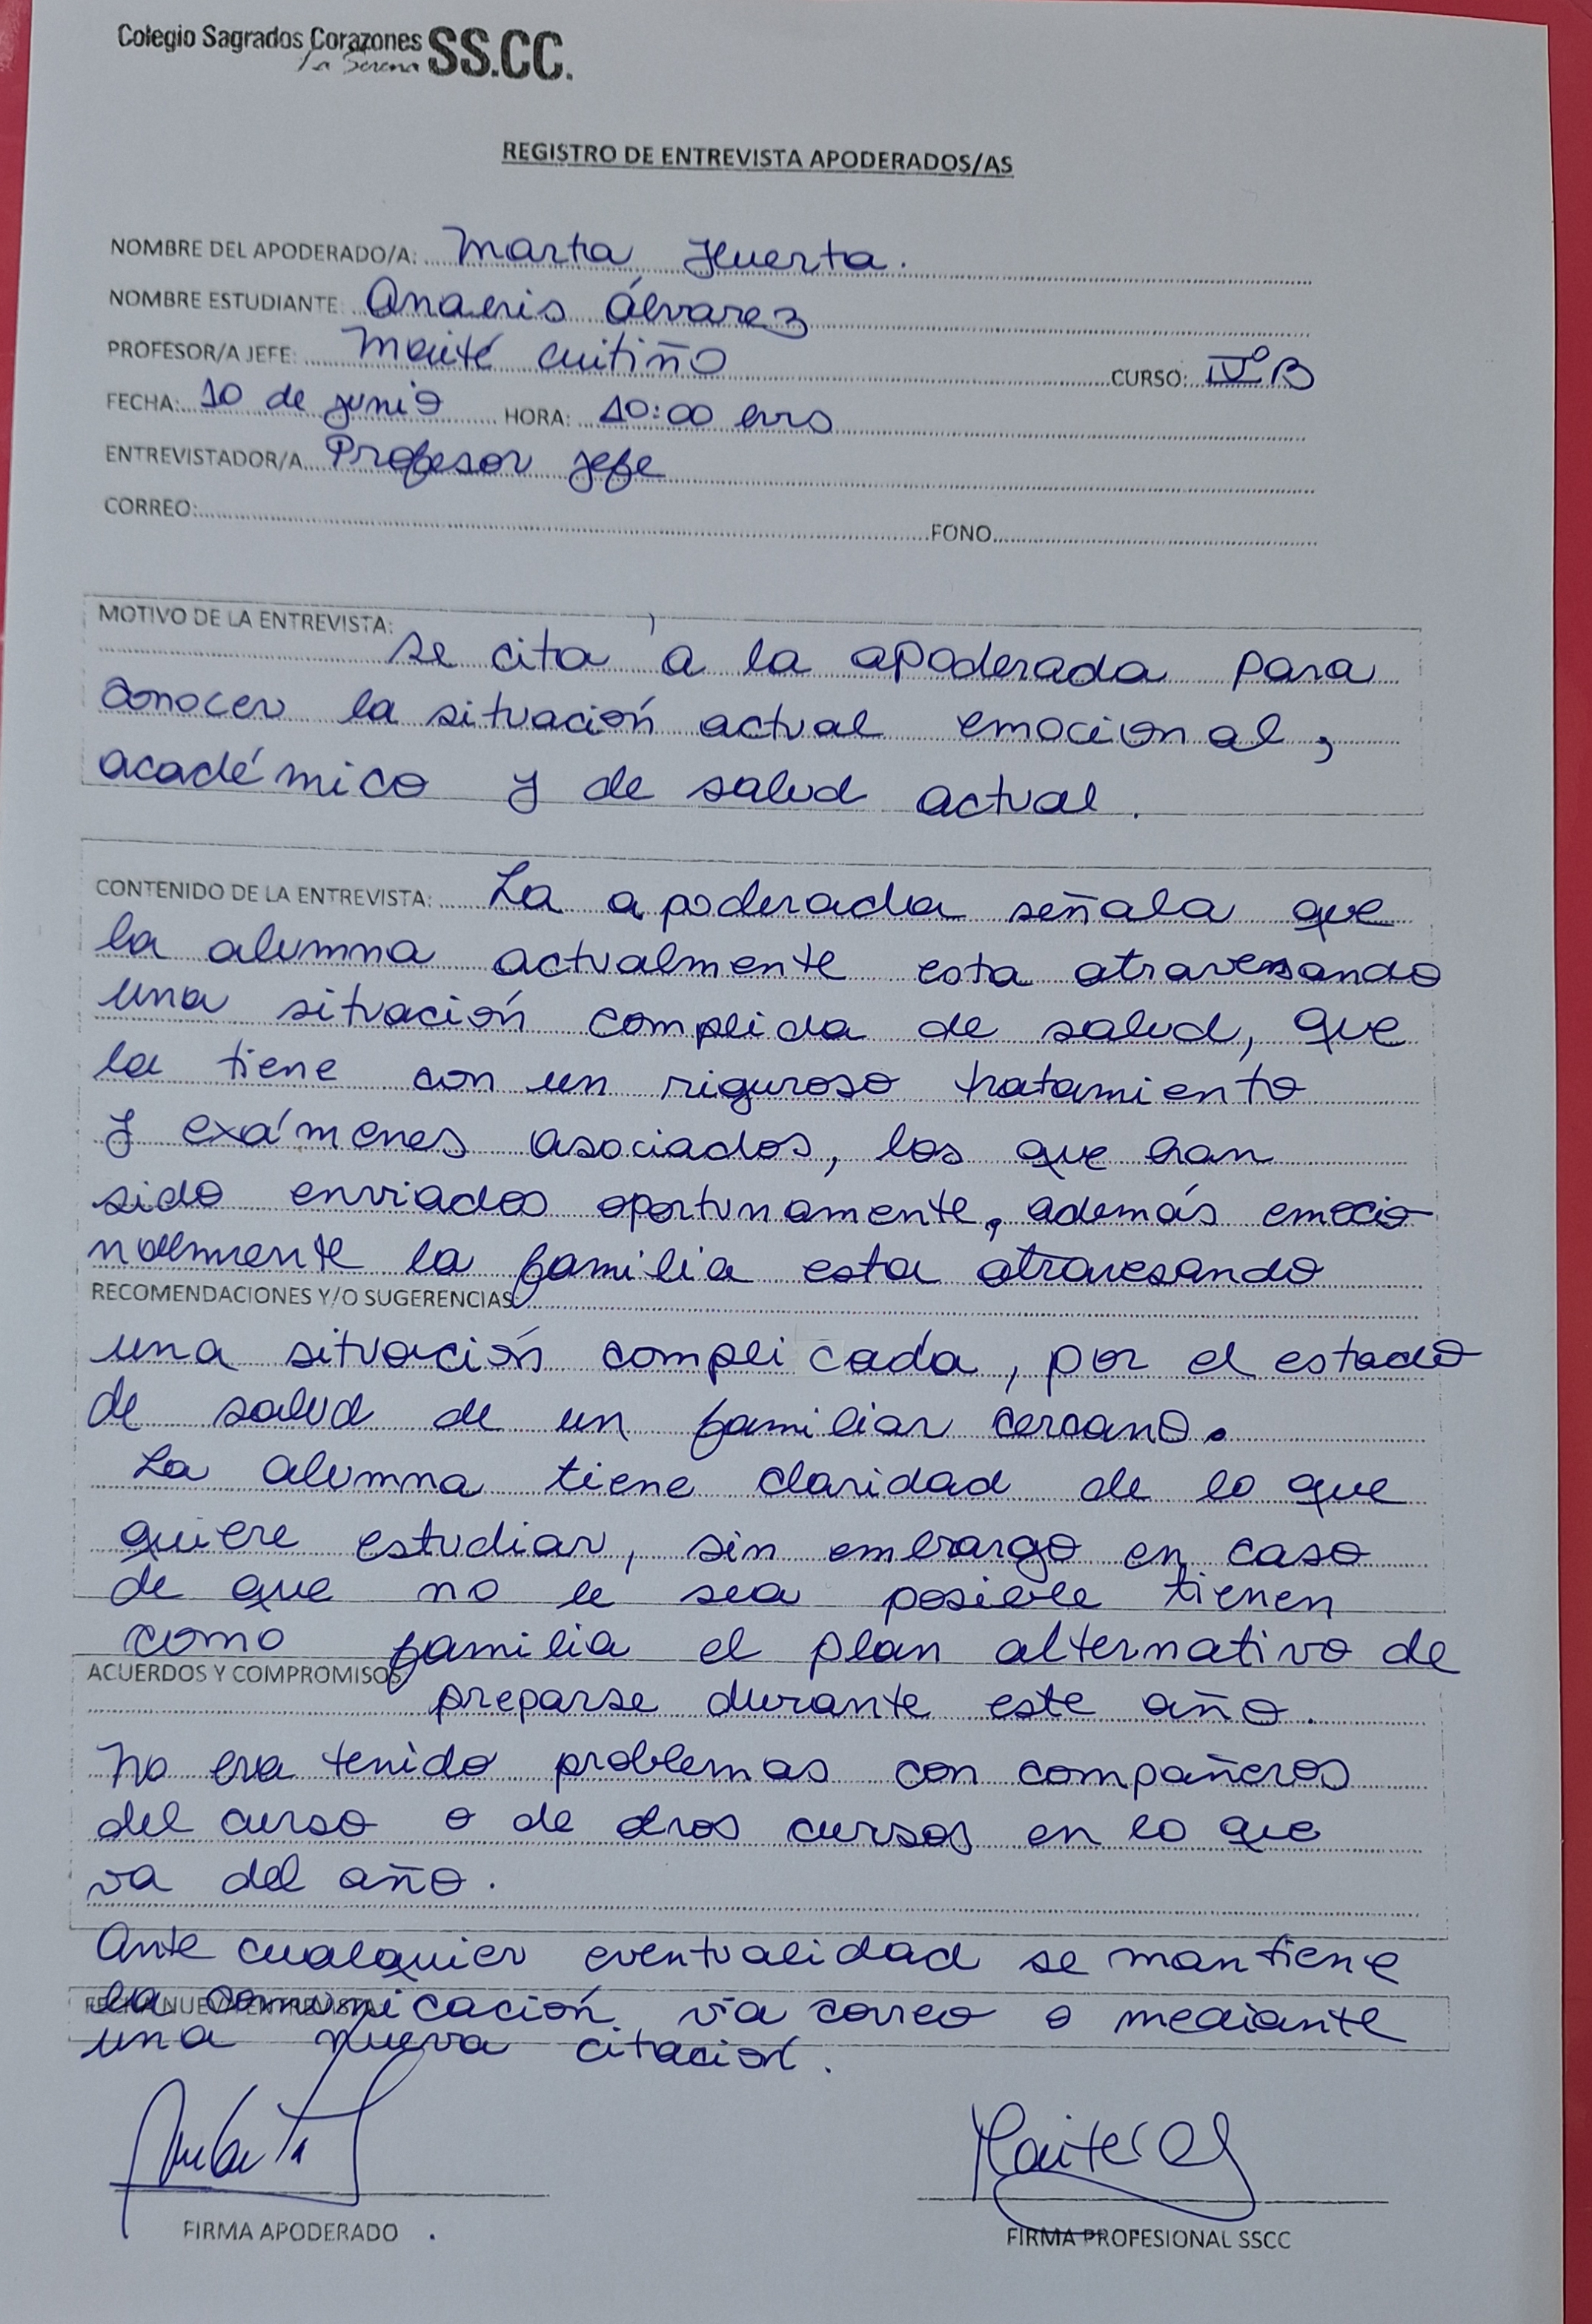 Colegio Sagrados Corazones SS.CC.
La Serena
REGISTRO DE ENTREVISTA APODERADOS/AS
NOMBRE DEL APODERADO/A: Marta Huerta.
NOMBRE ESTUDIANTE: Anaeris Álvarez
PROFESOR/A JEFE: Maité Cuitiño CURSO: IVº B
FECHA: 10 de junio HORA: 10:00 hrs
ENTREVISTADOR/A Profesor jefe
CORREO: FONO
MOTIVO DE LA ENTREVISTA: se cita a la apoderada para
conocer la situación actual emocional,
académico y de salud actual.
CONTENIDO DE LA ENTREVISTA: La apoderada señala que
la alumna actualmente esta atravesando
una situación complida de salud, que
la tiene con un riguroso tratamiento
y exámenes asociados, los que han
sido enviados oportunamente, además emocio
nalmente la familia esta atravesando
RECOMENDACIONES Y/O SUGERENCIAS:
una situación complicada, por el estado
de salud de un familiar cercano.
La alumna tiene claridad de lo que
quiere estudiar, sin embargo en caso
de que no le sea posible tienen
como familia el plan alternativo de
ACUERDOS Y COMPROMISOS
preparse durante este año.
No ha tenido problemas con compañeros
del curso o de otros cursos en lo que
va del año.
Ante cualquier eventualidad se mantiene
FECHA NUEVA ENTREVISTA
la comunicación vía correo o mediante
una nueva citación.
FIRMA APODERADO
FIRMA PROFESIONAL SSCC